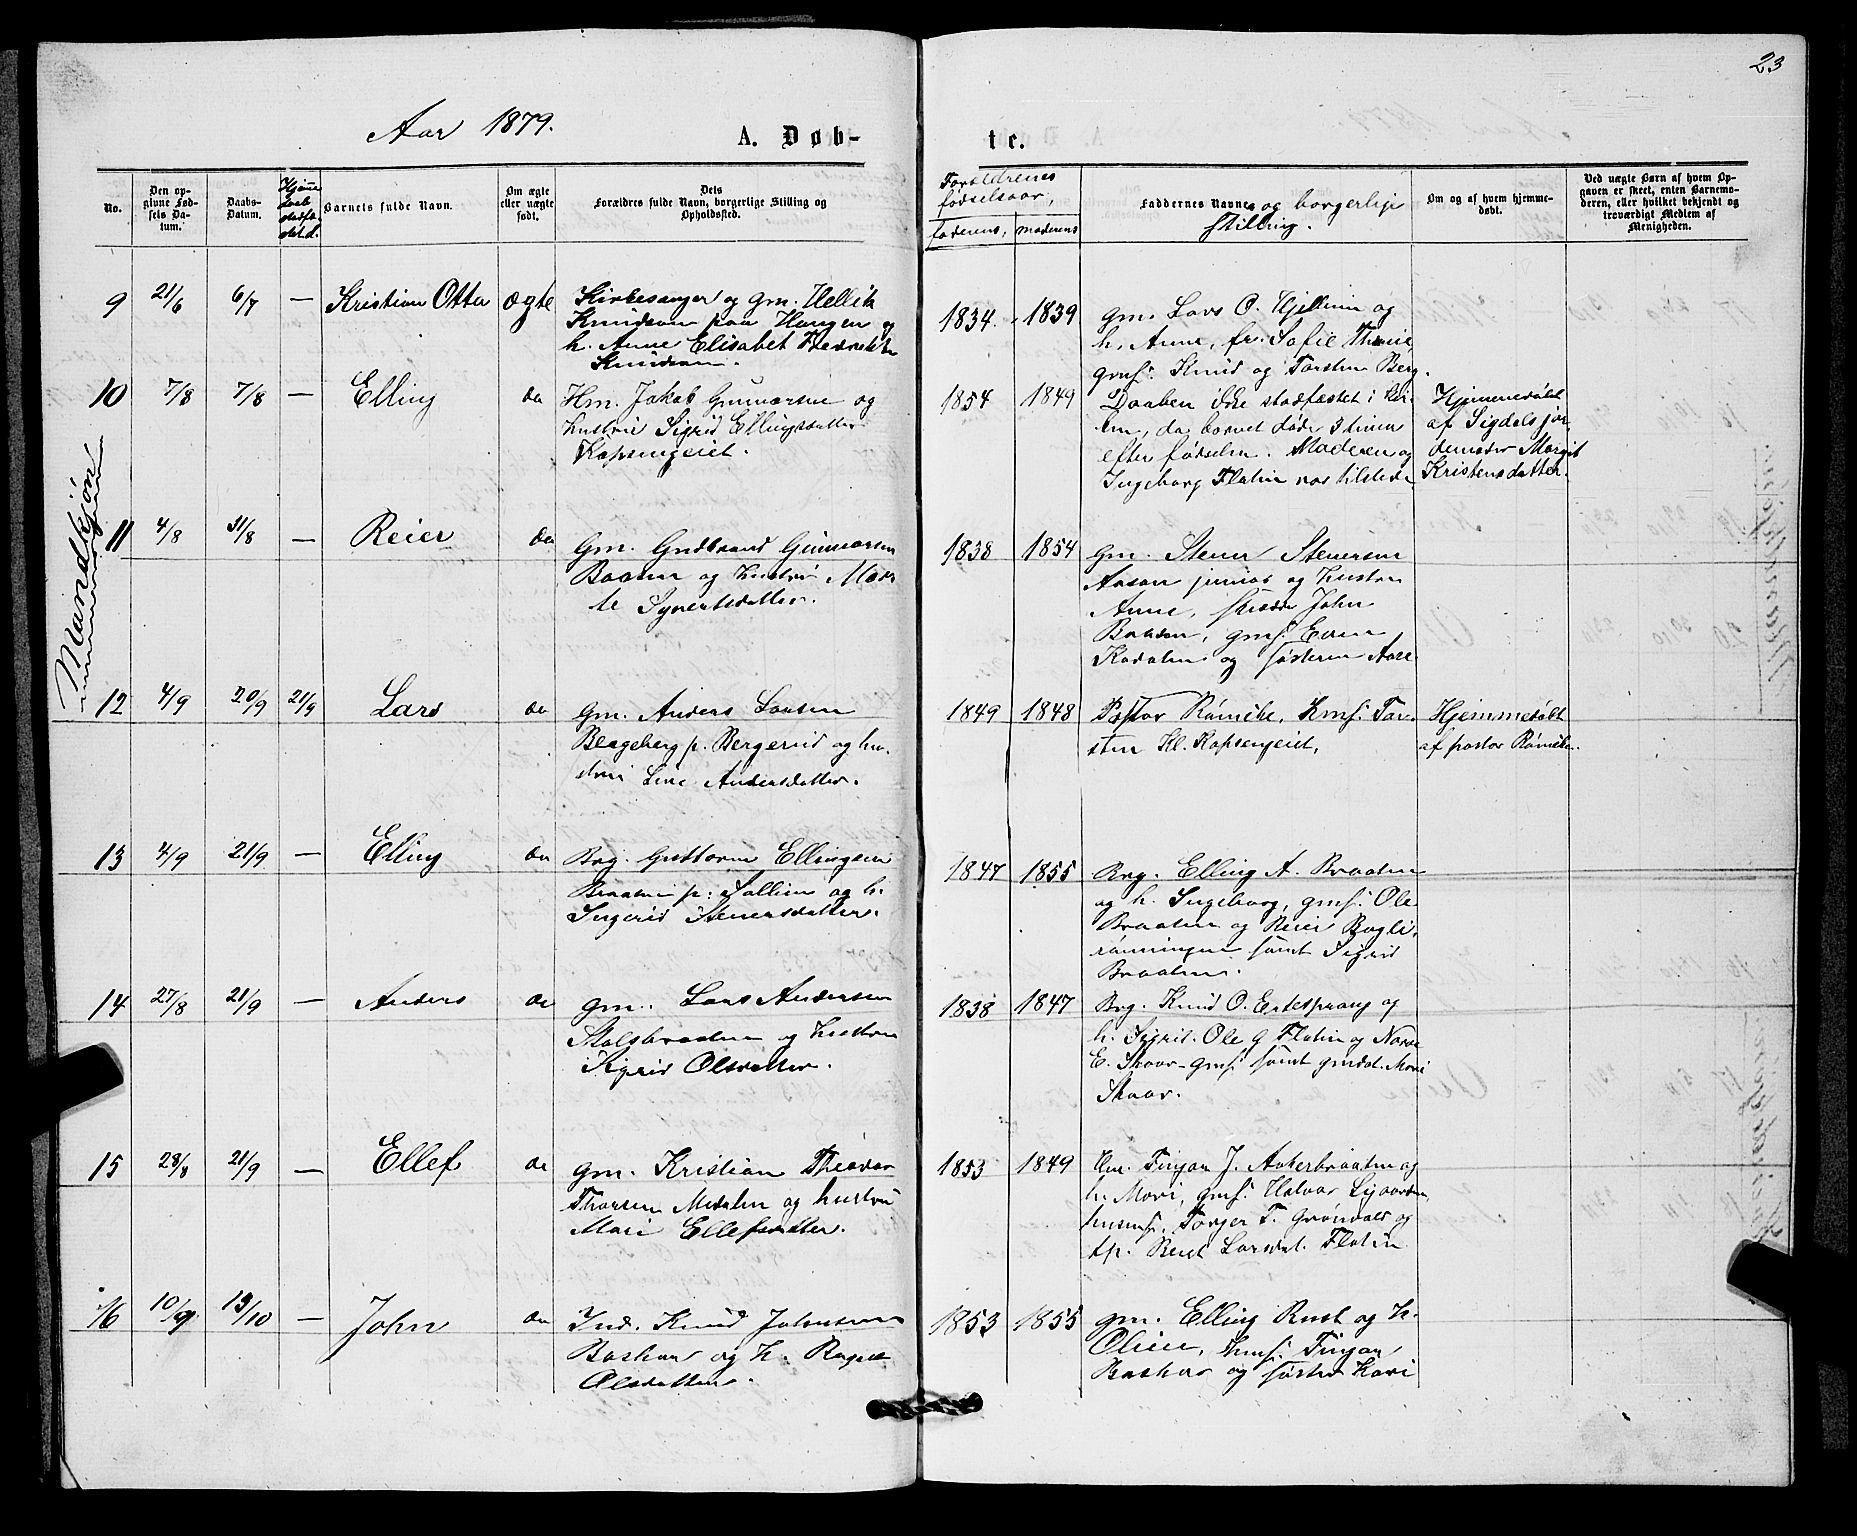 23
Aar 1879.
A. Døb-
te.
Mandkjøn
No.
Den op-
givne Fød-
sels Da-
tum.
Daabs-
Datum.
Hjemme
daab
stadfæ-
stet d.
Barnets fulde Navn.
Om ægte
eller uægte
født.
Dets
Forældres fulde Navn, borgerlige Stilling og
Opholdssted.
Forældrenes
fødselsaar,
faderens, moderens
Faddernes Navne og borgerlige
stilling.
Om og af hvem hjemme-
døbt.
Ved uægte Børn af hvem Op-
gaven er skeet, enten Barnemo-
deren, eller hvilket bekjendt og
troværdigt Medlem af
Menigheden.
9 21/6 6/7 — Kristian Otto ægte
Kirkesanger og gm. Hellik
Knudsen paa Haugen og
h. Anne Elisabet
Knudsen.
1834. 1839
gm. Lars O. Hjelmen og
h. Anne, fr. Sofie Thrine,
gmf. Knud og Torsten Berg.
10 7/8 7/8 — Elling do
Hm. Jakob Gunnarsen og
hustru Sigrid Ellingsdatter
Kopsengeiet.
1854 1849
Daaben ikke stadfæstet i kir-
ken, da barnet døde 3 timer
efter fødselen. Moderen og
Ingeborg Flatin var tilstede
Hjemmedøbt
af Sigdals jor-
demoder Margit
Kristensdatter.
11 4/8 31/8 — Reier do
Gm. Gudbrand Gunnarsen
Braaten og hustru Mar-
te Syvertsdatter.
1838 1854
gm. Stener Stenersen
Aasan junior og hustru
Anne, John
Braaten, gmf. Even
Kadalen og søsteren Aase
12 4/9 20/9 21/9 Lars do
gm. Anders Larsen
Blegeberg p. Bergerud og hu-
stru Live Andersdatter.
1849 1848
Pastor Rømcke, Kmf. Tor-
sten Kl. Kopsengeiet,
Hjemmedøbt
af pastor Rømcke.
13 4/9 21/9 — Elling do
Brg. Guttorm Ellingsen
Braaten p. og h.
Ingerid Stenersdatter.
1847 1855
Brg. Elling A. Braaten
og h. Ingeborg, gmf. Ole
Braaten og Reier Bagli-
rønningen samt Sigrid
Braaten.
14 27/8 21/9 — Anders do
gm. Lars Andersen
Stalsbraaten og hustru
Sigrid Olsdatter.
1838 1847
Brg. Knud O. Ertesprang og
h. Sigrid. Ole G Flatin og
E. Skaar gmf. samt gmdat. Mari
Skaar.
15 28/8 21/9 — Ellef do
gm. Kristian Theodor
Thorsen Medalen og hustru
Mari Ellefsdatter.
1853 1849
Hm. Tingan J. Aakerbraaten og
h. Mari, gmf. Halvor
husmf. Torger T. Grønvold og
tp. Larsdat. Flatin
16 10/9 19/10 — John do
Ind. Knud Johnsen
Bashus og h. Ragne
Olsdatter.
1853 1855
gm. Elling Rust og h.
Oline, hmf. Tingan
Baskas og søster Kari